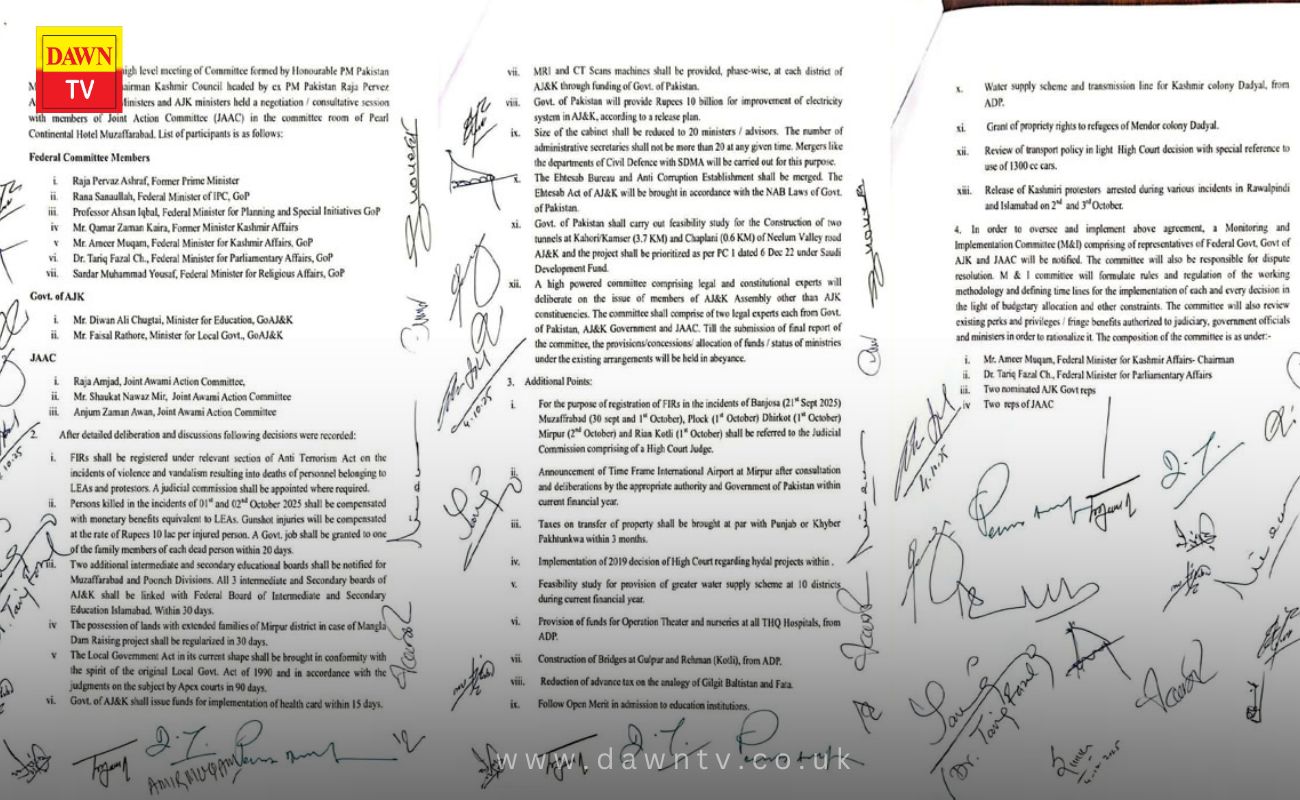 DAWN
TV
high level meeting of Committee formed by Honourable PM Pakistan
airman Kashmir Council headed by ex PM Pakistan Raja Pervez
Ministers and AJK ministers held a negotiation / consultative session
with members of Joint Action Committee (JAAC) in the committee room of Pearl
Continental Hotel Muzaffarabad. List of participants is as follows:
Federal Committee Members
i. Raja Pervaz Ashraf, Former Prime Minister
ii. Rana Sanaullah, Federal Minister of IPC, GoP
iii. Professor Ahsan Iqbal, Federal Minister for Planning and Special Initiatives GoP
iv Mr. Qamar Zaman Kaira, Former Minister Kashmir Affairs
v Mr. Ameer Muqam, Federal Minister for Kashmir Affairs, GoP
vi. Dr. Tariq Fazal Ch., Federal Minister for Parliamentary Affairs, GoP
vii. Sardar Muhammad Yousaf, Federal Minister for Religious Affairs, GoP
Govt. of AJK
i. Mr. Diwan Ali Chugtai, Minister for Education, GoAJ&K
ii. Mr. Faisal Rathore, Minister for Local Govt., GoAJ&K
JAAC
i. Raja Amjad, Joint Awami Action Committee,
ii. Mr. Shaukat Nawaz Mir, Joint Awami Action Committee
iii. Anjum Zaman Awan, Joint Awami Action Committee
2. After detailed deliberation and discussions following decisions were recorded:
i. FIRs shall be registered under relevant section of Anti Terrorism Act on the
incidents of violence and vandalism resulting into deaths of personnel belonging to
LEAs and protestors. A judicial commission shall be appointed where required.
ii. Persons killed in the incidents of 01st and 02nd October 2025 shall be compensated
with monetary benefits equivalent to LEAs. Gunshot injuries will be compensated
at the rate of Rupees 10 lac per injured person. A Govt. job shall be granted to one
of the family members of each dead person within 20 days.
iii. Two additional intermediate and secondary educational boards shall be notified for
Muzaffarabad and Poonch Divisions. All 3 intermediate and Secondary boards of
AJ&K shall be linked with Federal Board of Intermediate and Secondary
Education Islamabad. Within 30 days.
iv The possession of lands with extended families of Mirpur district in case of Mangla
Dam Raising project shall be regularized in 30 days.
v The Local Government Act in its current shape shall be brought in conformity with
the spirit of the original Local Govt. Act of 1990 and in accordance with the
judgments on the subject by Apex courts in 90 days.
vi. Govt. of AJ&K shall issue funds for implementation of health card within 15 days.
AMIR MUQAM
vii. MRI and CT Scans machines shall be provided, phase-wise, at each district of
AJ&K through funding of Govt. of Pakistan.
viii. Govt. of Pakistan will provide Rupees 10 billion for improvement of electricity
system in AJ&K, according to a release plan.
ix. Size of the cabinet shall be reduced to 20 ministers / advisors. The number of
administrative secretaries shall not be more than 20 at any given time. Mergers like
the departments of Civil Defence with SDMA will be carried out for this purpose.
x. The Ehtesab Bureau and Anti Corruption Establishment shall be merged. The
Ehtesab Act of AJ&K will be brought in accordance with the NAB Laws of Govt.
of Pakistan.
xi. Govt. of Pakistan shall carry out feasibility study for the Construction of two
tunnels at Kahori/Kamser (3.7 KM) and Chaplani (0.6 KM) of Neelum Valley road
AJ&K and the project shall be prioritized as per PC 1 dated 6 Dec 22 under Saudi
Development Fund.
xii. A high powered committee comprising legal and constitutional experts will
deliberate on the issue of members of AJ&K Assembly other than AJK
constituencies. The committee shall comprise of two legal experts each from Govt.
of Pakistan, AJ&K Government and JAAC. Till the submission of final report of
the committee, the provisions/concessions/ allocation of funds / status of ministries
under the existing arrangements will be held in abeyance.
3. Additional Points:
i. For the purpose of registration of FIRs in the incidents of Banjosa (21st Sept 2025)
Muzaffrabad (30 sept and 1st October), Plock (1st October) Dhirkot (1st October)
Mirpur (2nd October) and Rian Kotli (1st October) shall be referred to the Judicial
Commission comprising of a High Court Judge.
ii. Announcement of Time Frame International Airport at Mirpur after consultation
and deliberations by the appropriate authority and Government of Pakistan within
current financial year.
iii. Taxes on transfer of property shall be brought at par with Punjab or Khyber
Pakhtunkwa within 3 months.
iv. Implementation of 2019 decision of High Court regarding hydal projects within .
v. Feasibility study for provision of greater water supply scheme at 10 districts
during current financial year.
vi. Provision of funds for Operation Theater and nurseries at all THQ Hospitals, from
ADP.
vii. Construction of Bridges at Gulpur and Rehman (Kotli), from ADP.
viii. Reduction of advance tax on the analogy of Gilgit Baltistan and Fata.
ix. Follow Open Merit in admission to education institutions.
4.10.25
x. Water supply scheme and transmission line for Kashmir colony Dadyal, from
ADP.
xi. Grant of propriety rights to refugees of Mendor colony Dadyal.
xii. Review of transport policy in light High Court decision with special reference to
use of 1300 cc cars.
xiii. Release of Kashmiri protestors arrested during various incidents in Rawalpindi
and Islamabad on 2nd and 3rd October.
4. In order to oversee and implement above agreement, a Monitoring and
Implementation Committee (M&I) comprising of representatives of Federal Govt, Govt of
AJK and JAAC will be notified. The committee will also be responsible for dispute
resolution. M & I committee will formulate rules and regulation of the working
methodology and defining time lines for the implementation of each and every decision in
the light of budgetary allocation and other constraints. The committee will also review
existing perks and privileges / fringe benefits authorized to judiciary, government officials
and ministers in order to rationalize it. The composition of the committee is as under:-
i. Mr. Ameer Muqam, Federal Minister for Kashmir Affairs- Chairman
ii. Dr. Tariq Fazal Ch., Federal Minister for Parliamentary Affairs
iii. Two nominated AJK Govt reps
iv Two reps of JAAC
4.10.25
Dr. Tariq Fazal
www.dawntv.co.uk